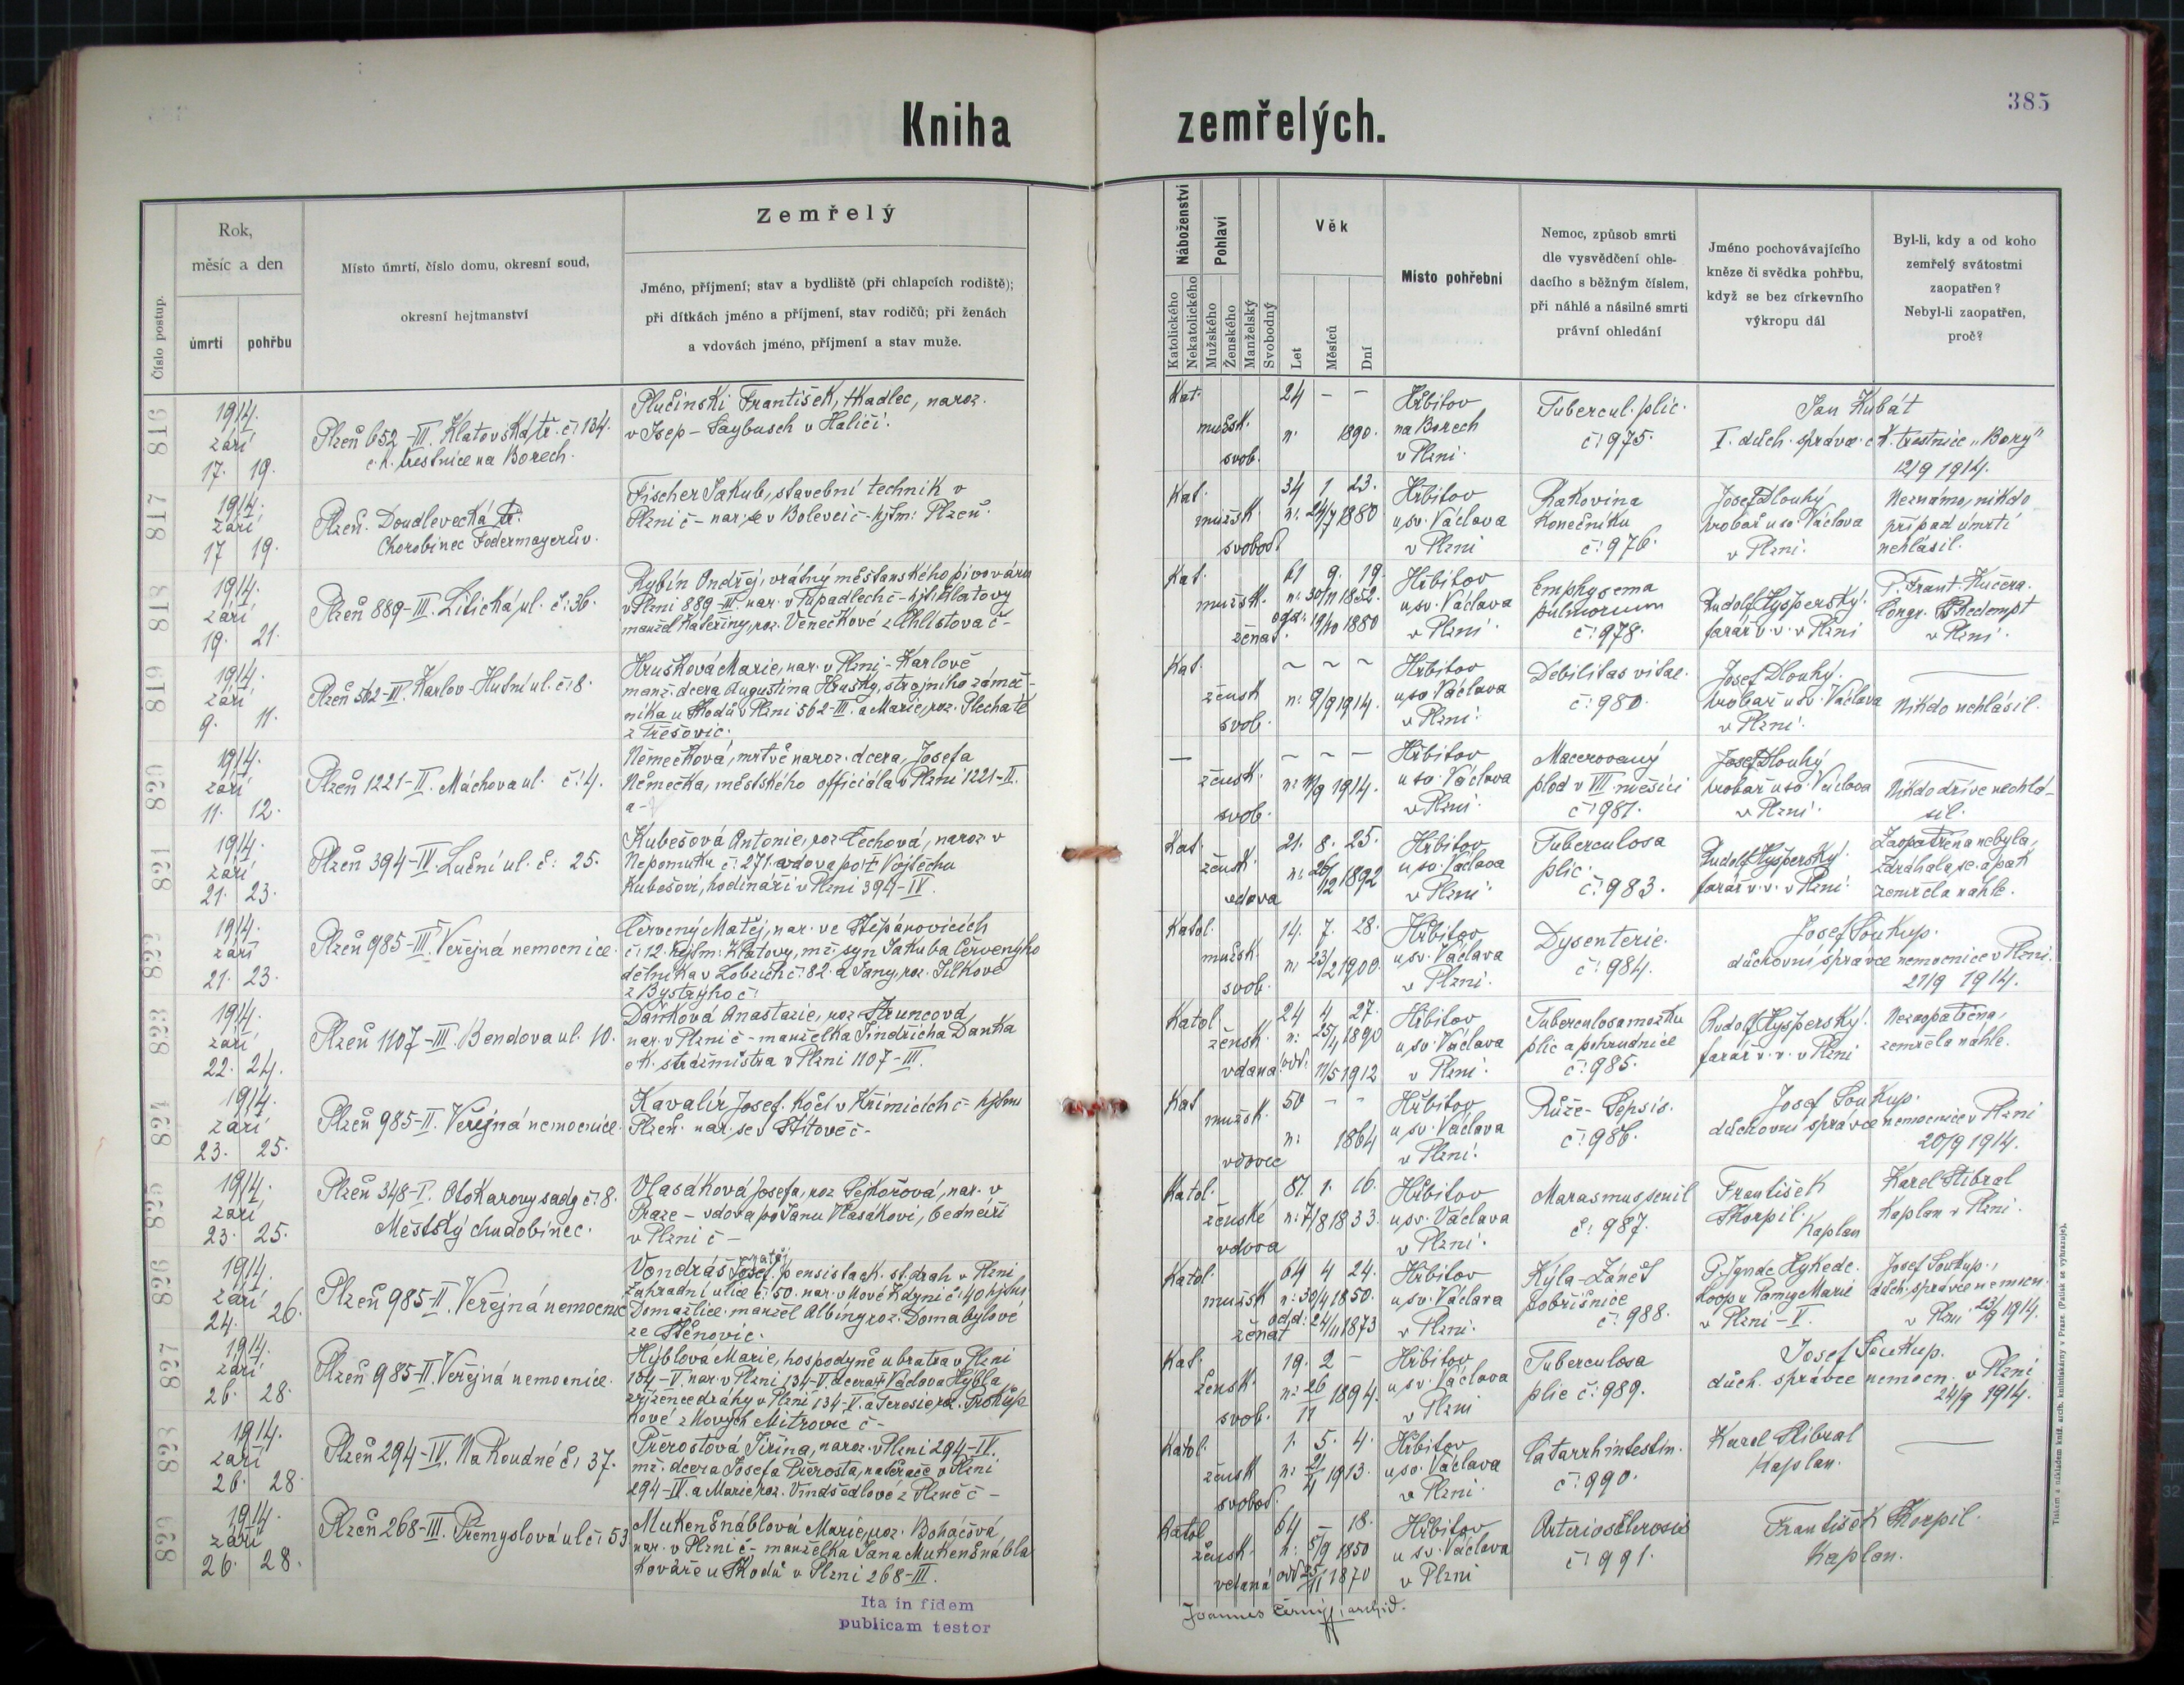 385
Kniha zemřelých.
Číslo postup.
Rok,
měsíc a den
úmrtí
pohřbu
Místo úmrtí, číslo domu, okresní soud,
okresní hejtmanství
Zemřelý
Jméno, příjmení; stav a bydliště (při chlapcích rodiště);
při dítkách jméno a příjmení, stav rodičů; při ženách
a vdovách jméno, příjmení a stav muže.
Náboženství
Katolického
Nekatolického
Pohlaví
Mužského
Ženského
Manželský
Svobodný
Věk
Let
Měsíců
Dní
Místo pohřební
Nemoc, způsob smrti
dle vysvědčení ohle-
dacího s běžným číslem,
při náhlé a násilné smrti
právní ohledání
Jméno pochovávajícího
kněze či svědka pohřbu,
když se bez církevního
výkropu dál
Byl-li, kdy a od koho
zemřelý svátostmi
zaopatřen?
Nebyl-li zaopatřen,
proč?
816
1914.
září
17. 19.
Plzeň 652-III. Klatovská tř. č: 134.
c. k. trestnice na Borech.
Plučinski František, tkadlec, naroz.
v Isep - Saybusch v Haliči.
Kat.
mužsk.
svob.
24 – –
n. 1890.
Hřbitov
na Borech
v Plzni.
Tubercul. plic.
č: 975.
Jan Kubát
I. duch. správce c. k. trestnice "Bory"
12/9 1914.
817
1914.
září
17 19.
Plzeň. Doudlevecká tř.
Chorobinec Fodermayerův.
Fischer Jakub, stavební technik v
Plzni č - nar. se v Bolevci č - hjtm: Plzeň.
Kat.
mužsk.
svobod
34 1 23.
n: 24/7 1880
Hřbitov
u sv. Václava
v Plzni
Rakovina
konečníku
č: 976.
Josef Dlouhý
hrobař u sv. Václava
v Plzni.
Neznámo, nikdo
případ úmrtí
nehlásil.
818
1914.
září
19. 21.
Plzeň 889-III. Litická ul. č: 36.
Rybín Ondřej, vrátný měšťanského pivováru
v Plzni 889-III. nar. v Tupadlech č - hjt: Klatovy
manžel Kateřiny, roz. Venečkové z Chlistova č -
Kat.
mužsk.
ženat.
61 9. 19.
n: 30/11 1852.
odd: 19/10 1880
Hřbitov
u sv. Václava
v Plzni.
Emphysema
pulmonum
č: 978.
Rudolf Hyšperský.
farář v. v. v Plzni
P. Frant Kučera.
Congr. Redempt
v Plzni.
819
1914.
září
9. 11.
Plzeň 562-III. Karlov-Hutní ul. č: 8.
Hrušková Marie, nar. v Plzni - Karlově
manž. dcera Augustina Hrušky, strojního zámeč-
níka u Škodů v Plzni 562-III. a Marie, roz. Plechaté
z Třešovic.
Kat.
žensk
svob.
~ ~ ~
n: 9/9 1914.
Hřbitov
u sv. Václava
v Plzni.
Debilitas vitae.
č: 980.
Josef Dlouhý.
hrobař u sv. Václava
v Plzni.
Nikdo nehlásil.
820
1914.
září
11. 12.
Plzeň 1221-II. Máchova ul. č: 4.
Němečková, mrtvě naroz. dcera, Josefa
Němečka, městského officiála v Plzni 1221-II.
a -
–
žensk.
svob.
~ ~ –
n: 11/9 1914.
Hřbitov
u sv. Václava
v Plzni.
Macerovaný
plod v VIII. měsíci
č: 981.
Josef Dlouhý
hrobař u sv. Václava
v Plzni.
Nikdo dříve neohlá-
sil.
821
1914.
září
21. 23.
Plzeň 394-IV. Luční ul. č: 25.
Kubešová Antonie, roz Čechová, naroz v
Nepomuku č: 271. vdova po † Vojtěchu
Kubešovi, hodináři v Plzni 394-IV.
Kat.
žensk.
vdova
21. 8. 25.
n: 26/12 1892
Hřbitov
u sv. Václava
v Plzni.
Tuberculosa
plic.
č: 983.
Rudolf Hyšperský.
farář v. v. v Plzni.
Zaopatřena nebyla,
zdráhala se, a pak
zemřela náhle.
822
1914.
září
21. 23.
Plzeň 985-II. Veřejná nemocnice.
Červený Matěj, nar. ve Štěpánovicích
č: 12. hejtm: Klatovy, mž. syn Jakuba Červenýho
dělníka v Lobzích č: 82. a Jany, roz. Jílkové
z Bystrýho č:
Katol.
mužsk.
svob.
14. 7. 28.
n: 23/2 1900.
Hřbitov
u sv. Václava
v Plzni.
Dysenterie.
č: 984.
Josef Soukup.
duchovní správce nemocnice v Plzni.
21/9 1914.
823
1914.
září
22. 24.
Plzeň 1107-III. Bendova ul. 10.
Daňková Anastazie, roz Štruncová,
nar. v Plzni č - manželka Jindřicha Daňka
c. k. strážmistra v Plzni 1107-III.
Katol
žensk.
vdaná
24 4 27.
n: 25/4 1890
odd: 11/5 1912
Hřbitov
u sv. Václava
v Plzni.
Tuberculosa mozku
plic a pohrudnice
č: 985.
Rudolf Hyšperský.
farář v. v. v Plzni
Nezaopatřena,
zemřela náhle.
824
1914.
září
23. 25.
Plzeň 985-II. Veřejná nemocnice.
Kavalír Josef. kočí v Křimicích č - hjtm
Plzeň. nar. se v Štítově č -
Kat
mužsk.
vdovec
50 – –
n: 1864
Hřbitov
u sv. Václava
v Plzni.
Růže - Sepsis.
č: 986.
Josef Soukup.
duchovní správce nemocnice v Plzni
20/9 1914.
825
1914.
září
23. 25.
Plzeň 348-I. Otokarovy sady č: 8.
Městský chudobinec.
Vlasáková Josefa, roz. Sejkořová, nar. v
Praze - vdova po Janu Vlasákovi, bednáři
v Plzni č -
Katol.
ženské
vdova
81. 1. 16.
n: 7/8 1833.
Hřbitov
u sv. Václava
v Plzni.
Marasmus senil
č: 987.
František
Škorpil.
kaplan
Karel Stibral
kaplan v Plzni.
826
1914.
září
24. 26.
Plzeň 985-II. Veřejná nemocnic
Vondráš Josef, pensista c. k. st. drah v Plzni
Zahradní ulice č: 50. nar. v Nové Kdyni č: 40 hjtm
Domažlice. manžel Albíny roz. Domabylové
ze Štěnovic.
Katol.
mužsk
ženat
64 4 24.
n: 30/4 1850.
odd: 24/11 1873
Hřbitov
u sv. Václava
v Plzni.
Kýla - Zánět
pobřišnice
č: 988.
P. Ignác Hykede.
koop u Panny Marie
v Plzni - V.
Josef Soukup.,
duch. správce nemocn.
v Plzni 23/9 1914.
827
1914.
září
26. 28.
Plzeň 985-II. Veřejná nemocnice.
Hýblová Marie, hospodyně u bratra v Plzni
134-V. nar. v Plzni 134-V. dcera † Václava Hýbla
zřízence dráhy v Plzni 134-V. a Terezie, roz. Prokůp-
kové z Nových Mitrovic č -
Kat.
Žensk.
svob.
19. 2 –
n: 26/11 1894.
Hřbitov
u sv. Václava
v Plzni
Tuberculosa
plic č: 989.
Josef Soukup.
duch. správce nemocn. v Plzni
24/9 1914.
828
1914.
září
26. 28.
Plzeň 294-IV. Na Roudné č: 37.
Přerostová Jiřina, naroz. v Plzni 294-IV.
mž. dcera Josefa Přerosta, natěrače v Plzni
294-IV. a Marie, roz. Vindšedlové z Plzně č -
Katol.
žensk
svobod.
1. 5. 4.
n: 1913.
Hřbitov
u sv. Václava
v Plzni.
Catarrh intestin.
č: 990.
Karel Stibral
kaplan.
829
1914.
září
26. 28.
Plzeň 268-III. Přemyslova ul č: 53
Mukenšnáblová Marie, roz. Boháčová,
nar. v Plzni č - manželka Jana Mukenšnábla
kováře u Škodů v Plzni 268-III.
Katol
žensk.
vdaná
64 – 18.
n: 8/9 1850
odd 25/11 1870
Hřbitov
u sv. Václava
v Plzni
Arteriosklerosis
č: 991.
František Škorpil.
kaplan.
Ita in fidem
publicam testor
Joannes Černý, archid.